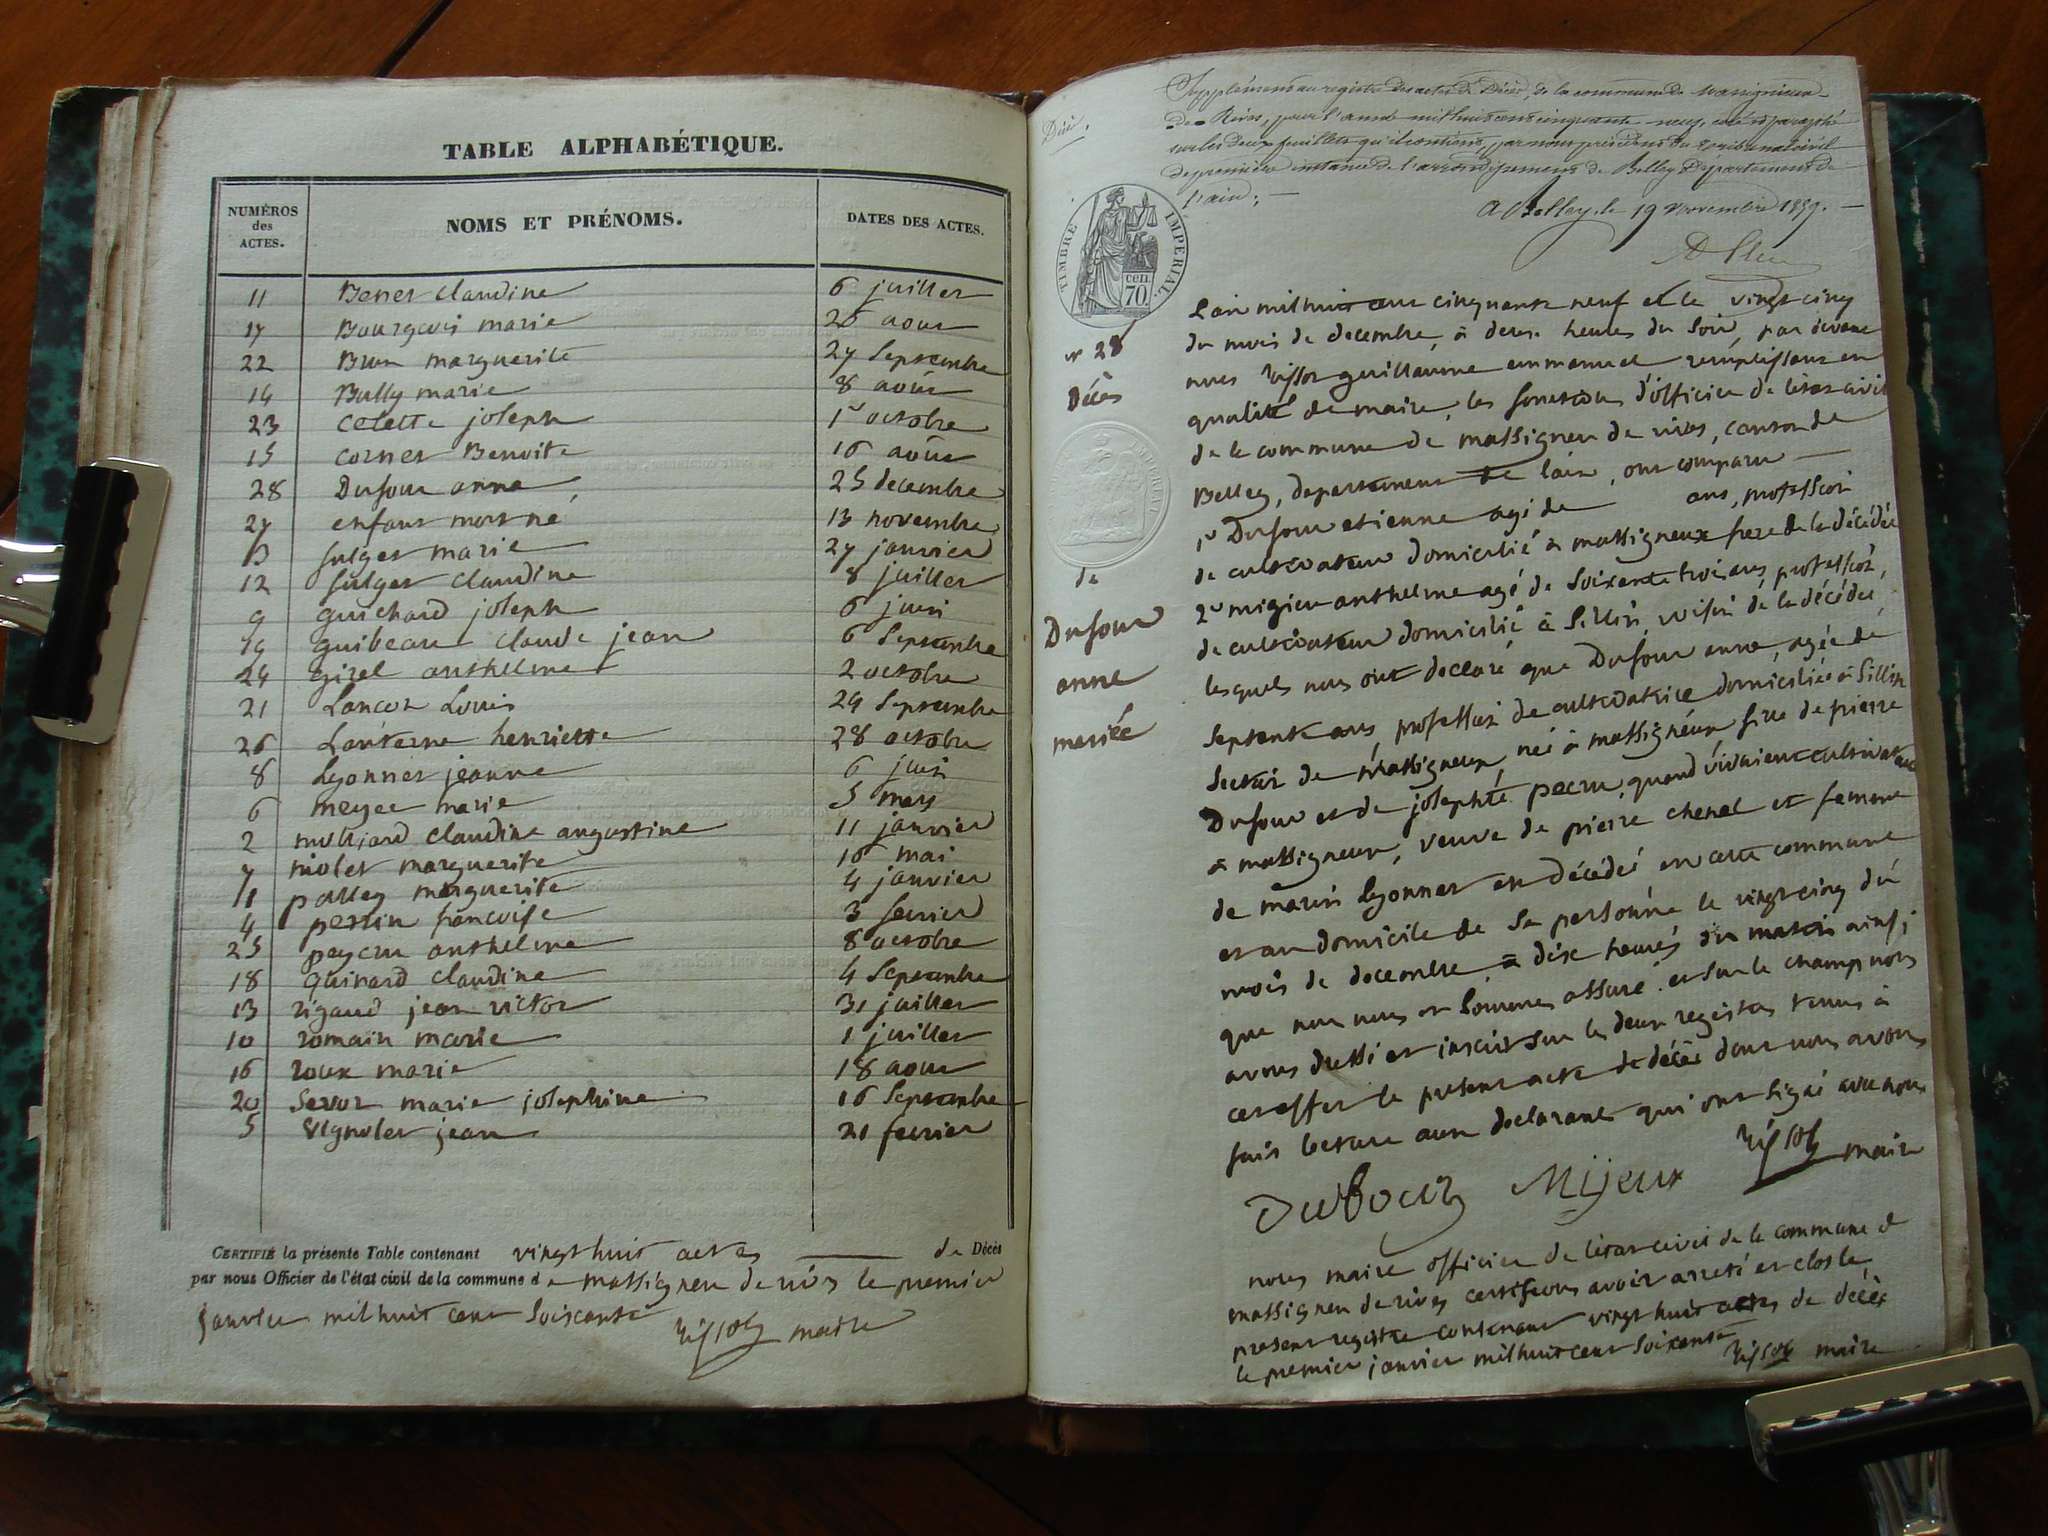 TABLE ALPHABÉTIQUE.
NUMÉROS des ACTES. NOMS ET PRÉNOMS. DATES DES ACTES.
11 Benet Claudine 6 juillet
17 Bourgeois marie 25 aout
22 Brun marguerite 27 Septembre
14 Bully marie 8 août
23 Celette joseph 1r octobre
15 Cornet Benoite 16 août
28 Dufour anne 25 decembre
27 enfant mort né 13 novembre
3 fulget marie 27 janvier
12 fulget Claudine 8 juillet
9 guichard joseph 6 juin
19 guibeau claude jean 6 Septembre
24 girel anthelme 2 octobre
21 Lancon Louis 24 Septembre
26 Lanterne henriette 28 octobre
8 Lyonnet jeanne 6 juin
6 meyer marie 5 mars
2 molliard claudine augustine 11 janvier
7 niolet marguerite 16 mai
1 palley marguerite 4 janvier
4 perrin francoise 3 fevrier
25 peycru anthelme 8 octobre
18 Quinard claudine 4 Septembre
13 rigaud jean victor 31 juillet
10 romain marie 1 juillet
16 roux marie 18 aout
20 Servoz marie josephine 16 Septembre
5 vignolet jean 21 fevrier
CERTIFIÉ la présente Table contenant vingt huit actes de Décès
par nous Officier de l'état civil de la commune de massigneu de rives le premier
janvier mil huit cent soixante
maire
Décès.
Supplément au registre des actes de Décès, de la commune de Massignieu
de Rives, pour l'année mil huit cent cinquante neuf, coté et paraphé
sur les deux feuillets qu'il contient, par nous président du tribunal civil
de première instance de l'arrondissement de Belley Département de
l'ain; —
A Belley, le 19 Novembre 1859. —
TIMBRE IMPERIAL.
70 cen.
n° 28
Décès
de
Dufour
anne
mariée
L'an mil huit cent cinquante neuf et le vingt cinq
du mois de decembre, à deux heures du soir, par devant
nous guillaume emmanuel remplissant en
qualité de maire, les fonctions d'officier de l'état civil
de la commune de massigneu de rives, canton de
Belley, departement de l'ain, ont comparu —
1r Dufour etienne agé de ans, profession
de cultivateur domicilié à massigneux frere de la décédée
2r migieu anthelme agé de soixante trois ans, profession,
de cultivateur domicilié à Sillin voisin de la décédée,
lesquels nous ont declaré que Dufour anne, agée de
septente ans profession de cultivatrice domiciliée à Sillin
section de massigneux née à massigneux fille de pierre
Dufour et de josephte pecru, quand vivaient cultivateurs
à massigneux, veuve de pierre chenel et femme
de marin Lyonnet est décédée en cette commune
et au domicile de sa personne le vingt cinq du
mois de decembre, à dix heures du matin ainsi
que nous nous en sommes assuré. et sur le champ nous
avons dressé et inscrit sur les deux registres tenus à
cet effet le present acte de décès dont nous avons
fait lecture aux declarants qui ont signé avec nous
Dufour Mijeux maire
nous maire officier de l'état civil de la commune de
massigneu de rives certifions avoir arreté et clos le
present registre contenant vingt huit actes de décès
le premier janvier mil huit cent soixante maire